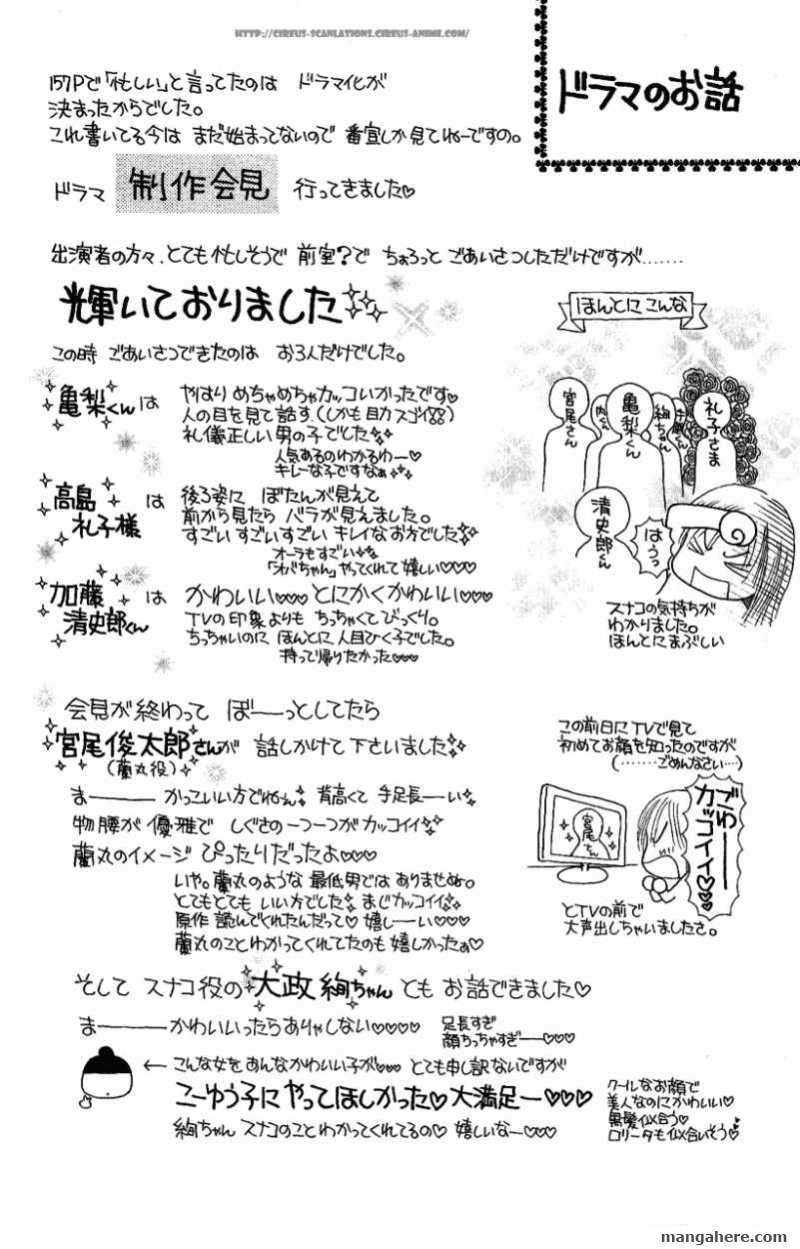 HTTP://CIREUS-SCANLATIONS.CIREUS-ANIME.COM/
ドラマのお話
157Pで「忙しい」と言ってたのは ドラマ化が
決まったからでした。
これ書いてる今は まだ始まってないので 番宣しか見てねーですの。
ドラマ 制作会見 行ってきました♡
出演者の方々、とても忙しそうで 前室?で ちょろっと ごあいさつしただけですが……
輝いておりました
この時 ごあいさつできたのは お3人だけでした。
亀梨くんは
やはり めちゃめちゃカッコいかったです♡
人の目を見て話す(しかも目力スゴイ)
礼儀正しい男の子でした
人気あるのわかるわー♡
キレーな子ですなぁ
高島礼子様は
後ろ姿に ぼたんが見えて
前から見たら バラが見えました。
すごい すごい すごい キレイなお方でした
オーラもすごい
「オバちゃん」やってくれて嬉しい♡♡♡
加藤清史郎くんは
かわいい♡♡♡ とにかくかわいい♡♡♡
TVの印象よりも ちっちゃくてびっくり。
ちっちゃいのに ほんとに人目ひく子でした。
持って帰りたかった♡♡♡
ほんとにこんな
宮尾さん
亀梨くん
絢ちゃん
礼子さま
清史郎くん
はうっ
スナコの気持ちが
わかりました。
ほんとにまぶしい
会見が終わって ぼーっとしてたら
宮尾俊太郎さんが 話しかけて下さいました
(蘭丸役)
まー かっこいい方でねぇ 背高くて 手足長ーい
物腰が優雅で しぐさの一つ一つがカッコイイ
蘭丸のイメージ ぴったりだったよ♡♡♡
いや。蘭丸のような 最低男では ありませぬ。
とてもとても いい方でした まじカッコイイ
原作 読んでくれたんだって♡ 嬉しーい♡♡♡
蘭丸のことわかってくれてたのも 嬉しかったぁ♡
この前日にTVで見て
初めてお顔を知ったのですが
(……ごめんなさい…)
宮尾さん
ブわーーカッコイイ♡♡♡
とTVの前で
大声出しちゃいましたさ。
そして スナコ役の 大政絢ちゃん とも お話できました♡
まー かわいいったらありゃしない♡♡♡♡
足長すぎ
顔ちっちゃすぎー♡♡♡
← こんな女をあんなかわいい子が♡♡♡ とても申し訳ないですが
こーゆう子に やってほしかった♡ 大満足ー♡♡♡
絢ちゃん スナコのこと わかってくれてるの♡ 嬉しいなー♡♡♡
クールなお顔で
美人なのにかわいい♡
黒髪似合う♡
ロリータも似合いそう♡
mangahere.com